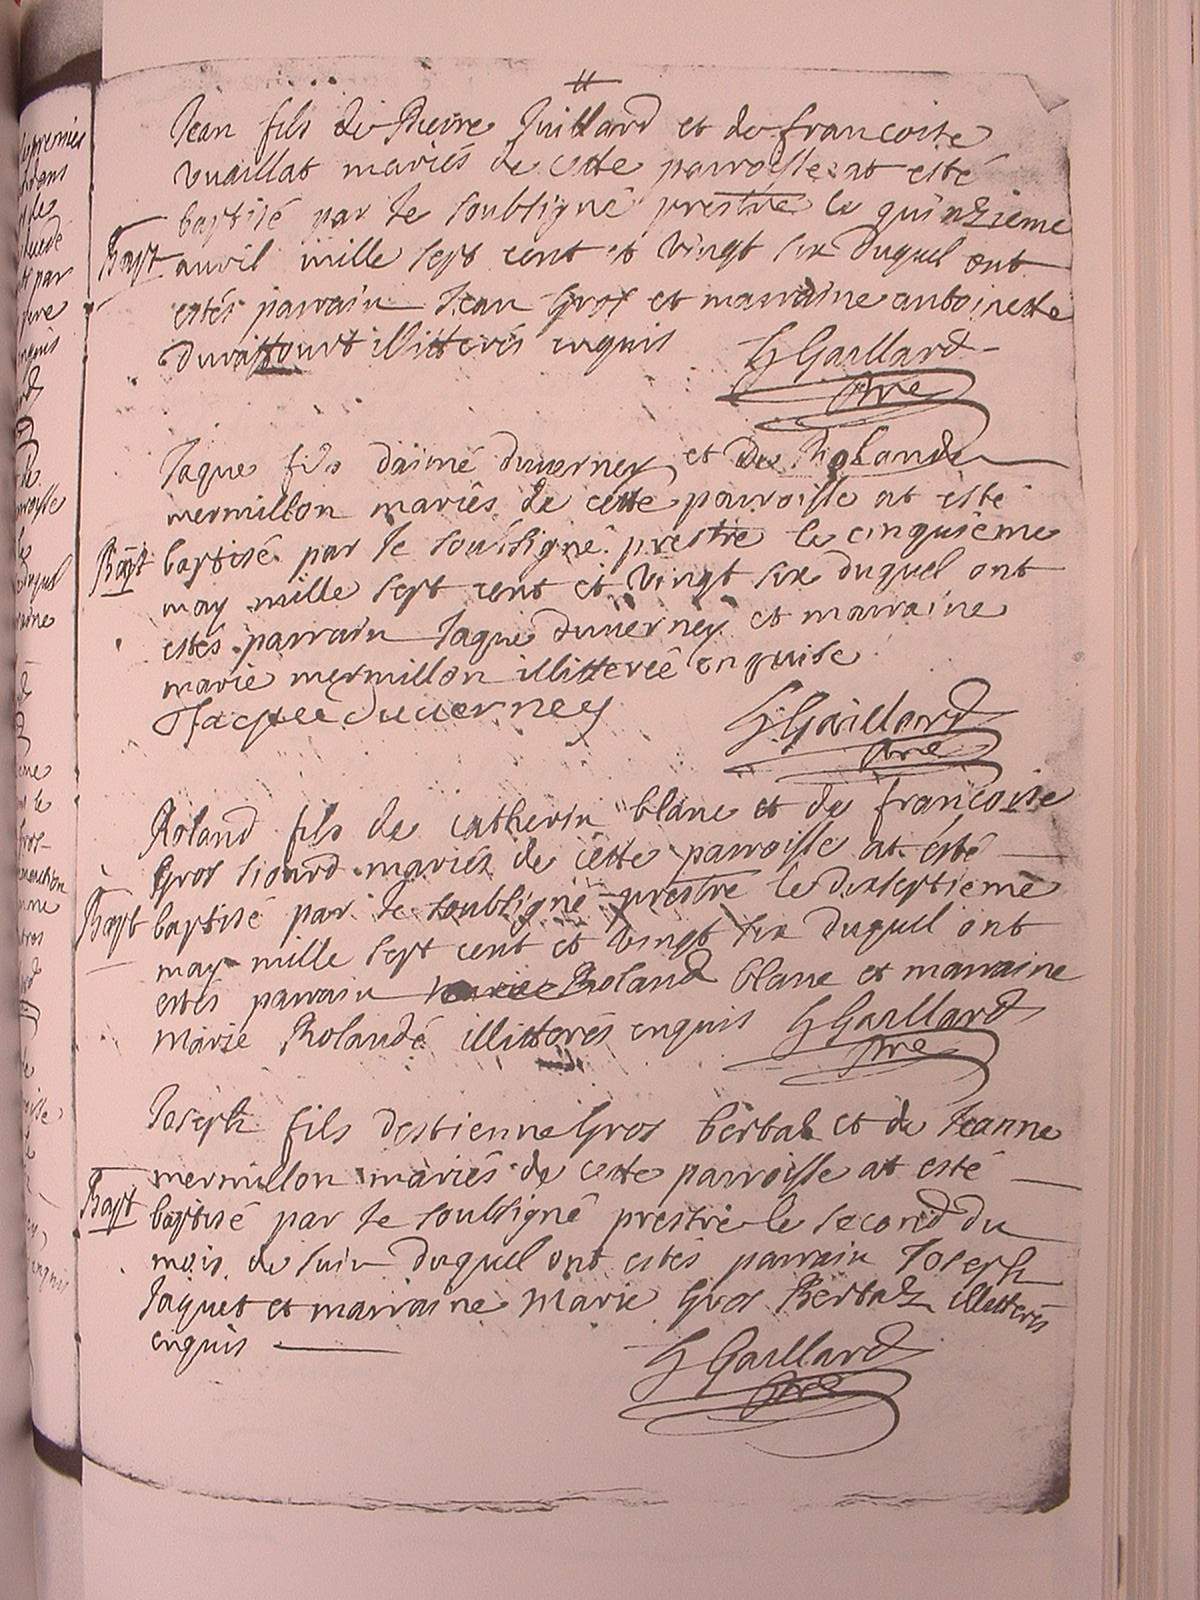 Jean fils de Pierre Juillard et de francoise
vuaillat mariés de cette parroisse at esté
baptisé par Je soubsigné prestre le quinzieme
Bapt
auvril mille sept cent et vingt six duquel ont
estés parrain Jean Gros et marraine antoinette
illitterés enquis
G Gaillard
ptre
Jaque fils daimé duverney et de Rolande
mermillon mariés de cette parroisse at esté
Bapt
baptisé par Je soubsigné prestre le cinquieme
may mille sept cent et vingt six duquel ont
estés parrain Jaque duverney et marraine
marie mermillon illitterée enquise
Jacque duverney
G Gaillard
ptre
Roland fils de catherin blanc et de francoise
Gros mariés de cette parroisse at esté
Bapt
baptisé par Je soubsigné prestre le dixseptieme
may mille sept cent et vingt six duquel ont
estés parrain Roland blanc et marraine
Marie Rolande illitterés enquis
G Gaillard
ptre
Joseph fils destienne Gros bertaz et de Jeanne
mermillon mariés de cette parroisse at esté
Bapt
baptisé par Je soubsigné prestre le second du
mois de Juin duquel ont estés parrain Joseph
Jaquet et marraine Marie Gros Bertaz illitterés
enquis
G Gaillard
ptre